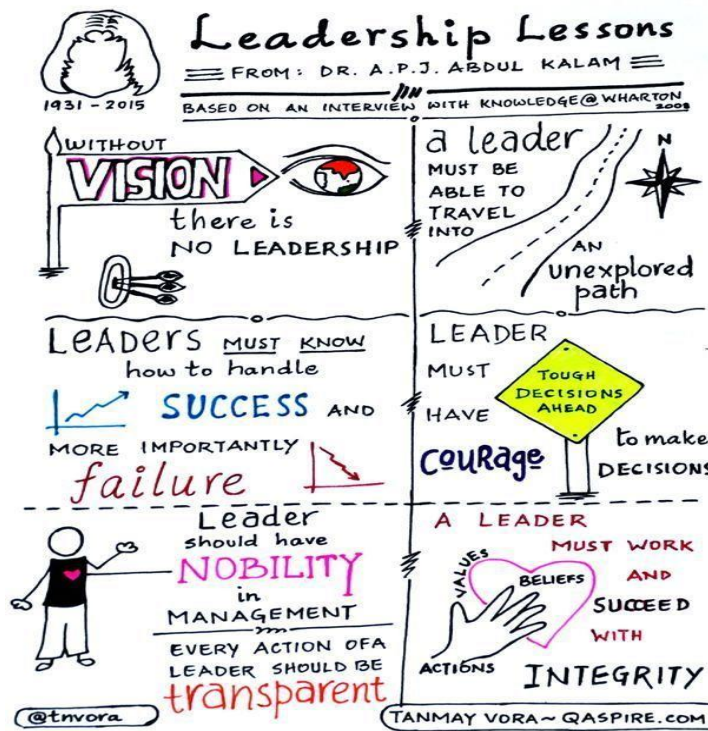 Leadership Lessons
FROM: DR. A.P.J. ABDUL KALAM
1931 - 2015
BASED ON AN INTERVIEW WITH KNOWLEDGE@WHARTON
2008
WITHOUT
VISION
there is
NO LEADERSHIP
a leader
MUST BE
ABLE TO
TRAVEL
INTO
N
AN
unexplored
path
LEADERS MUST KNOW
how to handle
SUCCESS AND
MORE IMPORTANTLY
failure
LEADER
MUST
HAVE
COURAGE
TOUGH
DECISIONS
AHEAD
to make
DECISIONS
Leader
should have
NOBILITY
in
MANAGEMENT
EVERY ACTION OF A
LEADER SHOULD BE
transparent
A LEADER
MUST WORK
AND
SUCCEED
WITH
INTEGRITY
VALUES
BELIEFS
ACTIONS
@tnvora
TANMAY VORA~QASPIRE.COM